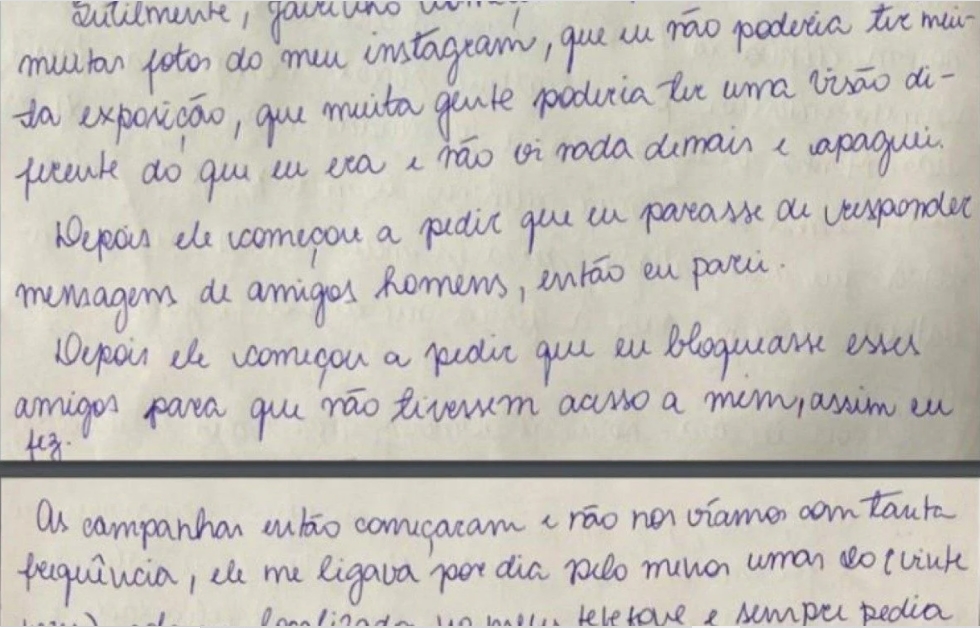 sutilmente,
muitas fotos do meu instagram, que eu não poderia ter mui-
ta exposição, que muita gente poderia ter uma visão di-
ferente do que eu era e não vi nada demais e apaguei.
Depois ele começou a pedir que eu parasse de responder
mensagens de amigos homens, então eu parei.
Depois ele começou a pedir que eu bloqueasse esses
amigos para que não tivessem acesso a mim, assim eu
fez.
As campanhas então começaram e não nos víamos com tanta
frequência, ele me ligava por dia pelo menos umas 20 (vinte
localizada no meu telefone e sempre pedia